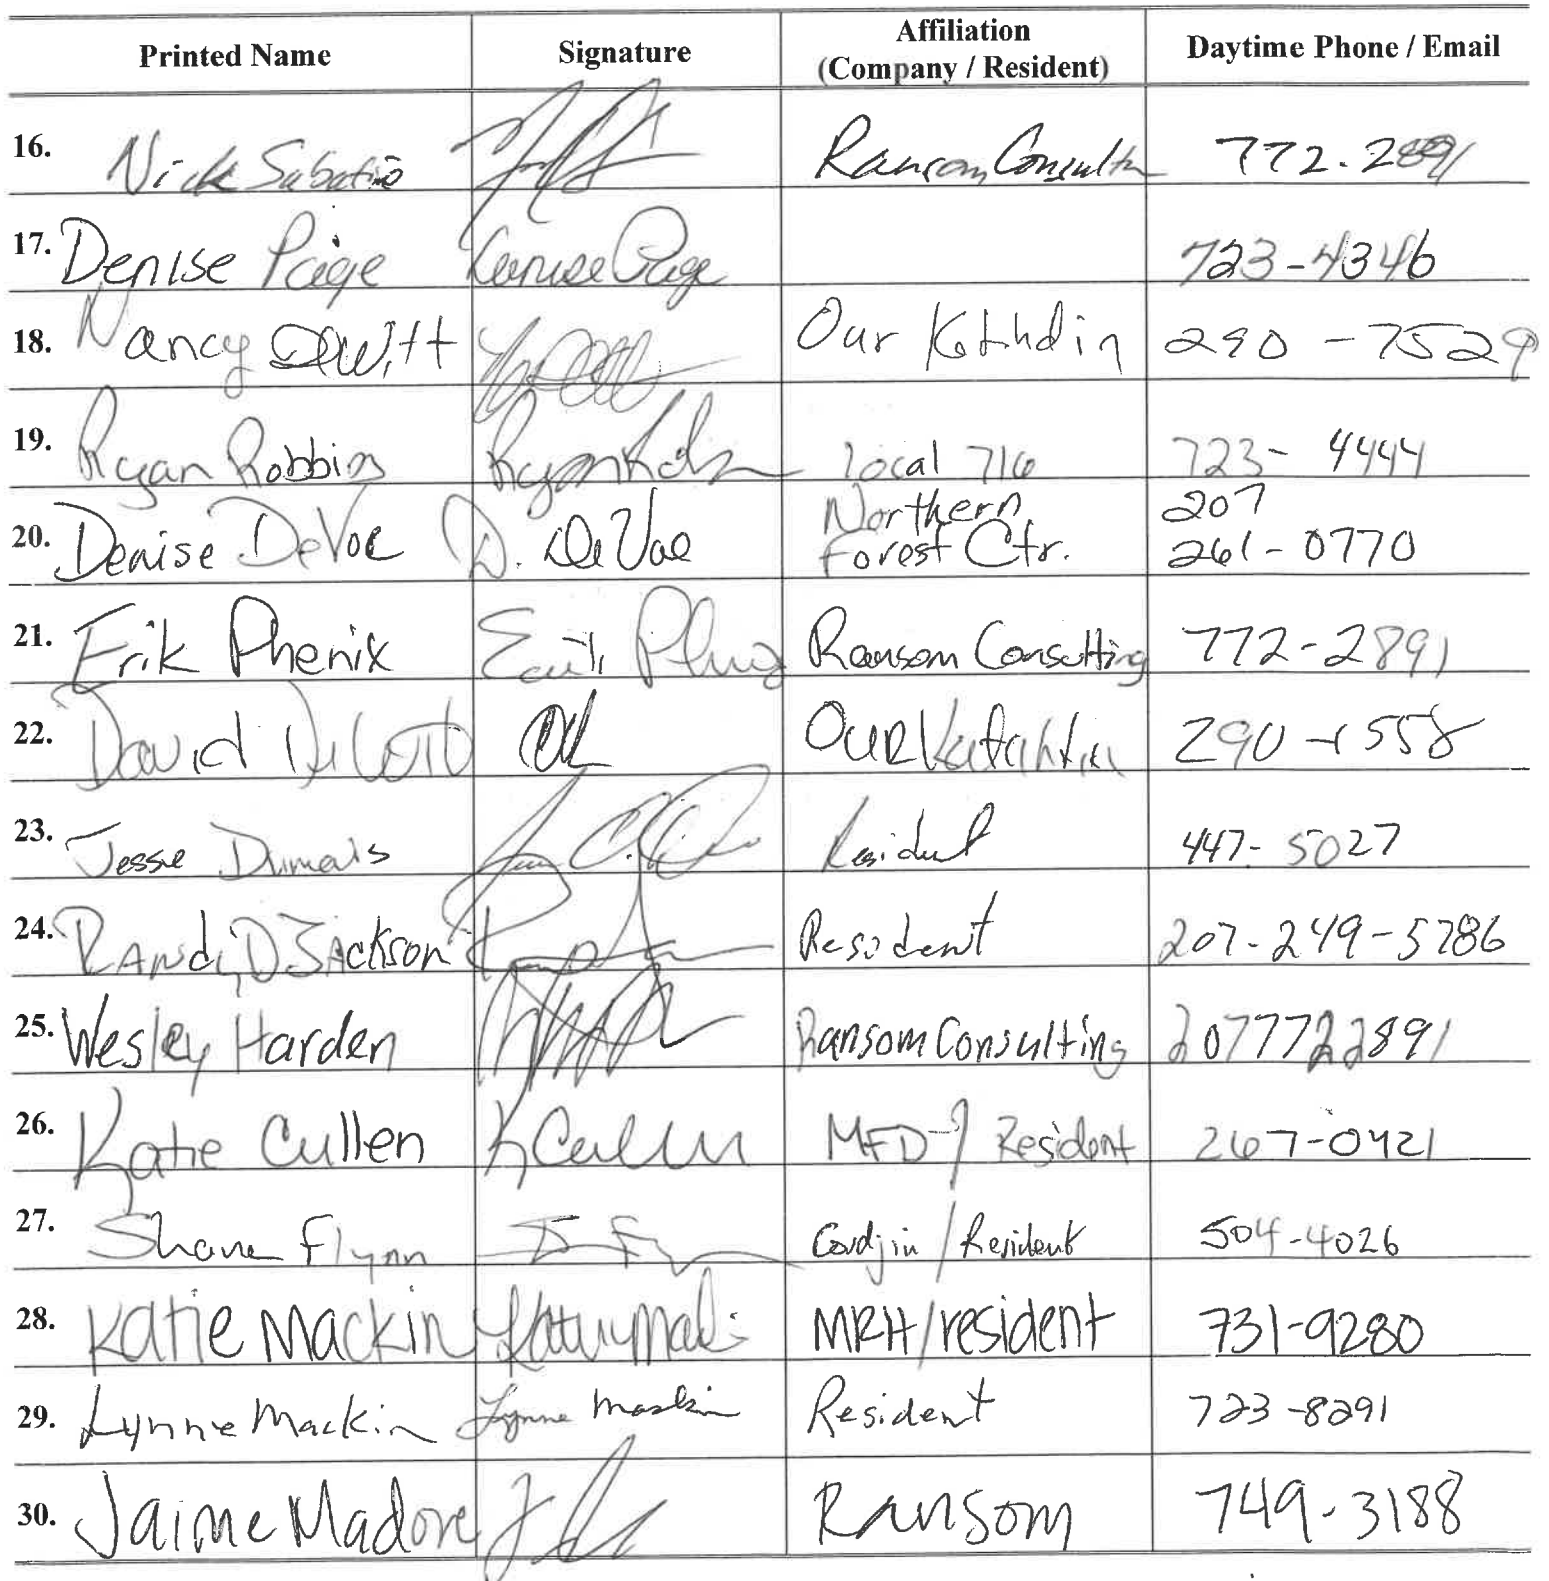 Printed Name Signature Affiliation (Company / Resident) Daytime Phone / Email
16. Nick Sabatino Ransom Consultn 772-2891
17. Denise Paige Denise Paige 723-4346
18. Nancy DeWitt Our Katahdin 290-7529
19. Ryan Robbins Local 716 723-4444
20. Denise DeVoe D. DeVoe Northern Forest Ctr. 207 261-0770
21. Erik Phenix Ransom Consulting 772-2891
22. David OUR Katahdin 290-1558
23. Jessie Dumais Resident 447-5027
24. RANdy D JAckson Resident 207-249-5786
25. Wesley Harden Ransom Consulting 2077722891
26. Katie Cullen K Cullen MFD / Resident 267-0421
27. Shane Flynn / Resident 504-4026
28. Katie Mackin MRH/resident 731-9280
29. Lynne Mackin Lynne Mackin Resident 723-8291
30. Jaime Madore Ransom 749-3188